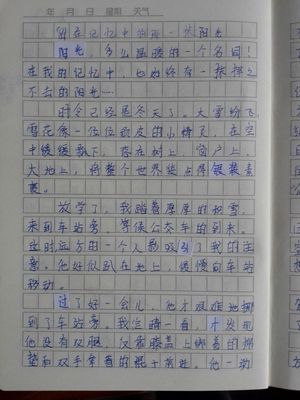 年 月 日 星期 天气
留在记忆中的那一张阳光
阳光，多么温暖的一个名词！
在我的记忆中，也始终有一张挥之
不去的阳光…
时令已经是冬天了。大雪纷飞，
雪花像一位位顽皮的小精灵，在空
中缓缓飘下，落在树上，窗户上，
大地上，将整个世界装点得银装素
裹。
放学了，我踏着厚厚的积雪，
来到车站旁，等候公交车的到来。
这时远方的一个人影吸引了我的注
意。他好似趴在地上，缓慢向车站
移动。
过了好一会儿，他才艰难地挪
到了车站旁。我定睛一看，才发现
他没有双腿，仅靠膝盖上绑着的
垫和双手拿着的棍子前进。他一动